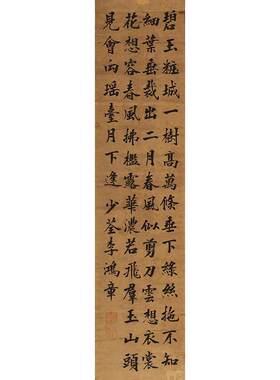 碧玉粧城一樹高萬條垂下綠絲拖不知
細葉垂裁出二月春風似剪刀雲想衣裳
花想容春風拂檻露華濃若飛羣玉山頭
見會向瑶臺月下逢少荃李鴻章